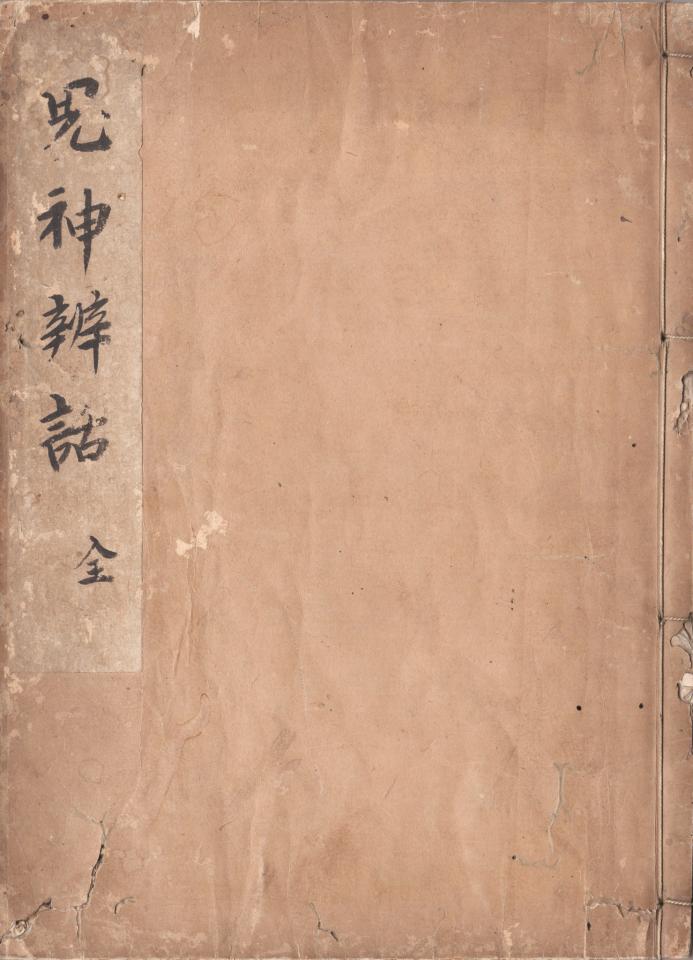 鬼神辨話 全